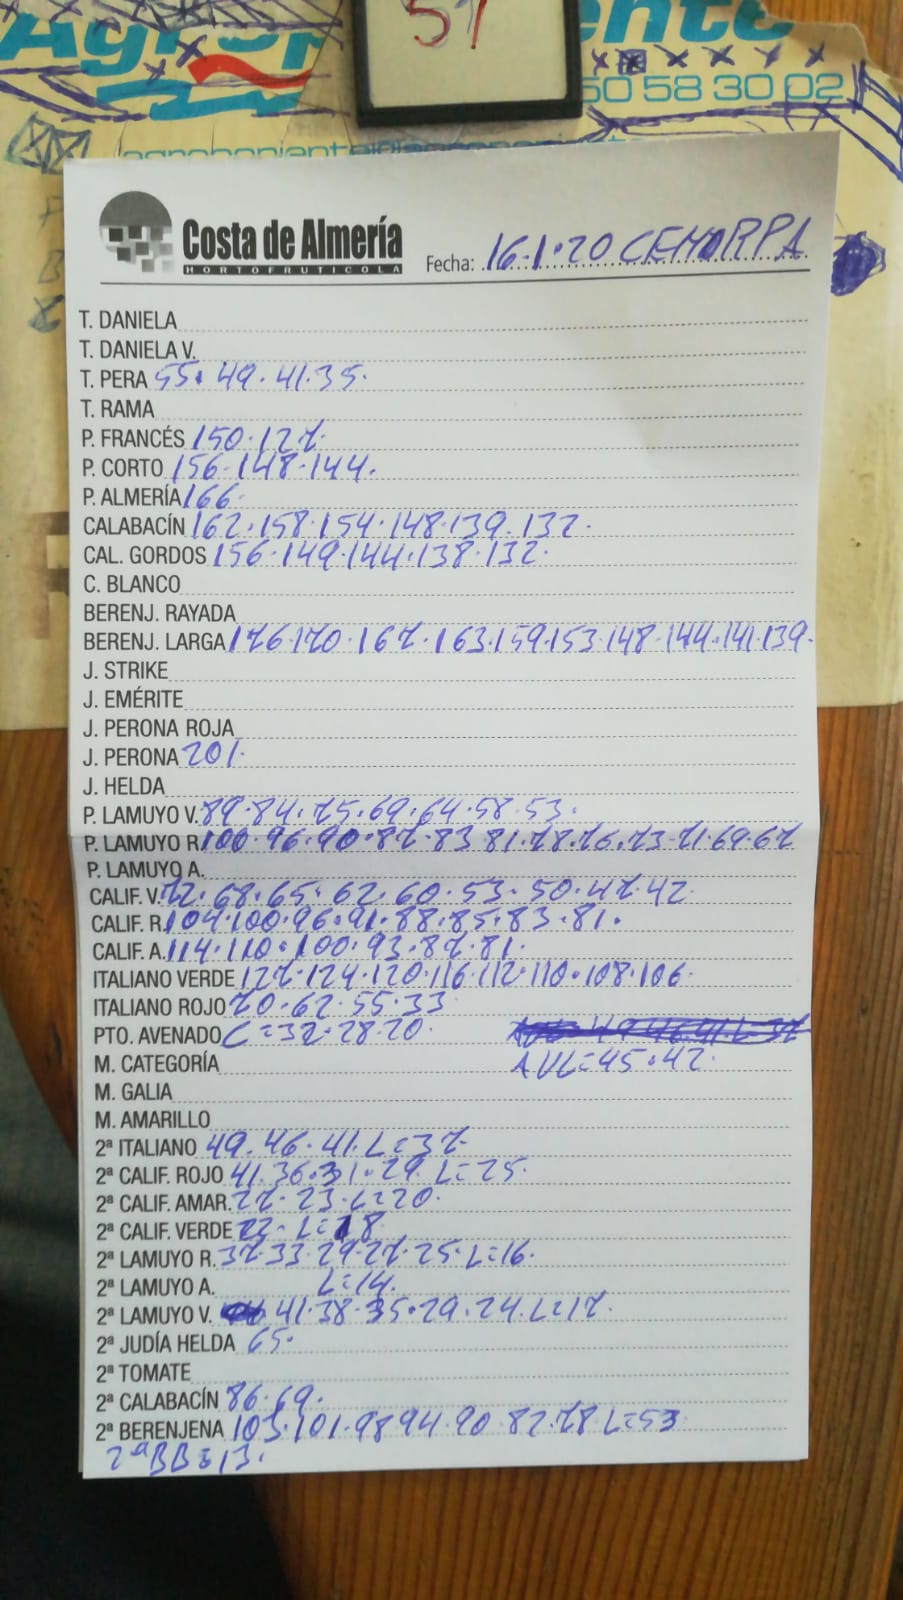 51
50 58 30 02
Costa de Almería
HORTOFRUTICOLA
Fecha: 16·1·20 CEHORPA
T. DANIELA
T. DANIELA V.
T. PERA 55· 49·41·35·
T. RAMA
P. FRANCÉS 150·127·
P. CORTO 156·148·144·
P. ALMERÍA 166·
CALABACÍN 162·158·154·148·139·132·
CAL. GORDOS 156·149·144·138·132·
C. BLANCO
BERENJ. RAYADA
BERENJ. LARGA 176·170·167·163·159·153·148·144·141·139·
J. STRIKE
J. EMÉRITE
J. PERONA ROJA
J. PERONA 201·
J. HELDA
P. LAMUYO V. 89·84·75·69·64·58·53·
P. LAMUYO R. 100·96·90·87·83·81·78·76·73·71·69·67
P. LAMUYO A.
CALIF. V. 72·68·65·62·60·53·50·47·42
CALIF. R. 104·100·96·91·88·85·83·81·
CALIF. A. 114·110·100·93·87·81·
ITALIANO VERDE 127·124·120·116·112·110·108·106
ITALIANO ROJO 70·62·55·33
PTO. AVENADO C=32·28·20·
M. CATEGORÍA AVL=45·42·
M. GALIA
M. AMARILLO
2ª ITALIANO 49·46·41·L=37·
2ª CALIF. ROJO 41·36·31·29·L=25·
2ª CALIF. AMAR. 27·23·L=20·
2ª CALIF. VERDE 22·L=18·
2ª LAMUYO R. 37·33·29·27·25·L=16·
2ª LAMUYO A. L=14·
2ª LAMUYO V. 41·38·35·29·24·L=17·
2ª JUDÍA HELDA 65·
2ª TOMATE
2ª CALABACÍN 86·69·
2ª BERENJENA 103·101·98·94·90·82·78·L=53
2ªBB=13·